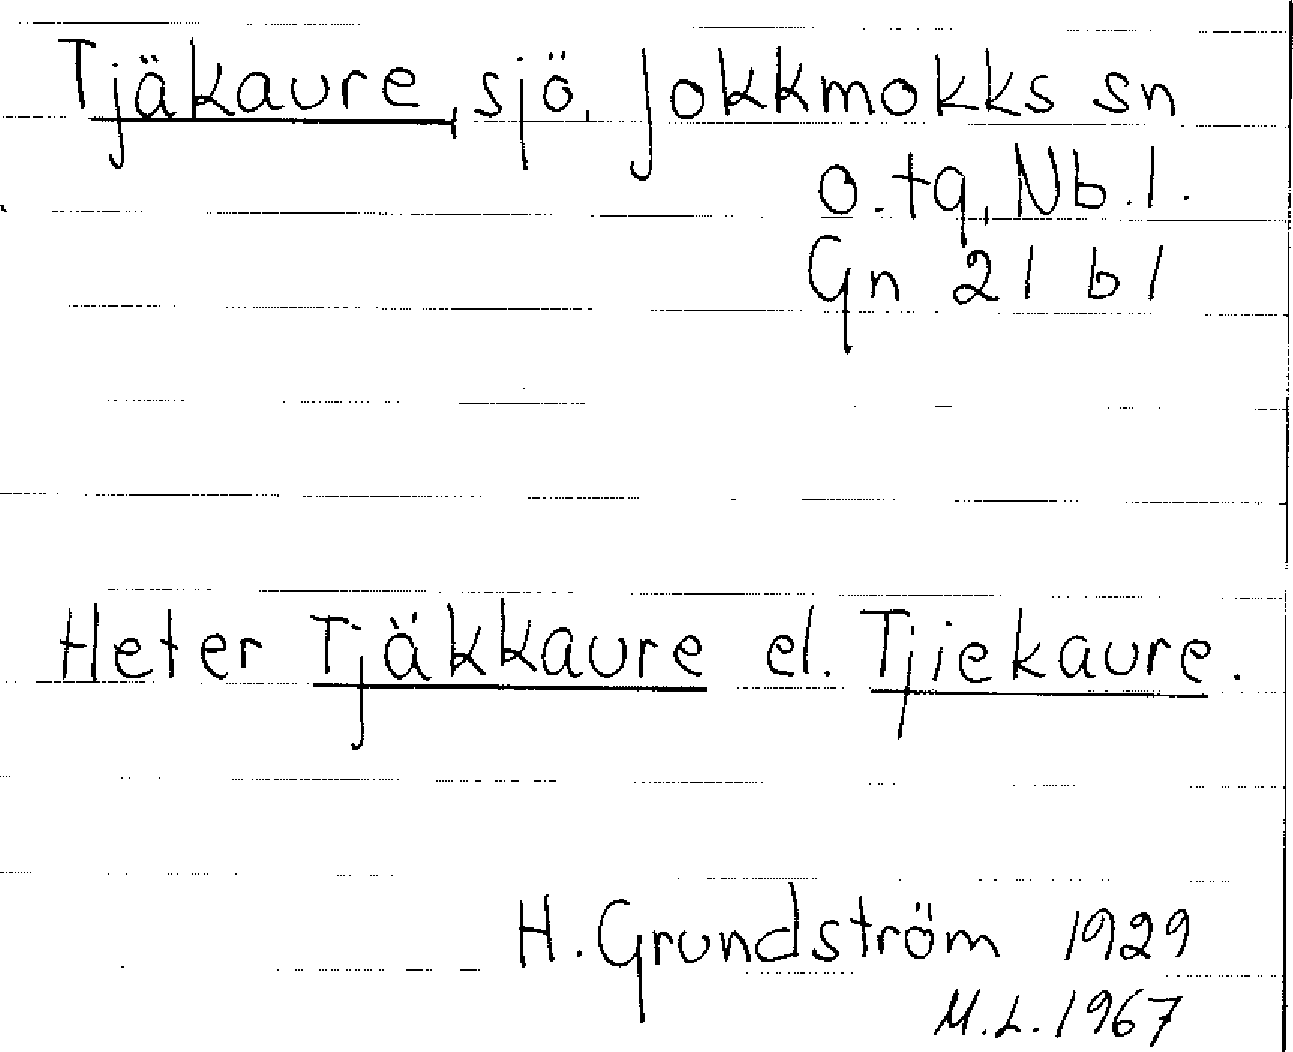 Tjäkaure, sjö, Jokkmokks sn
o. tg, Nb. l.
Gn 21 b1
Heter Tjäkkaure el. Tjiekaure.
H. Grundström 1929
M.L. 1967